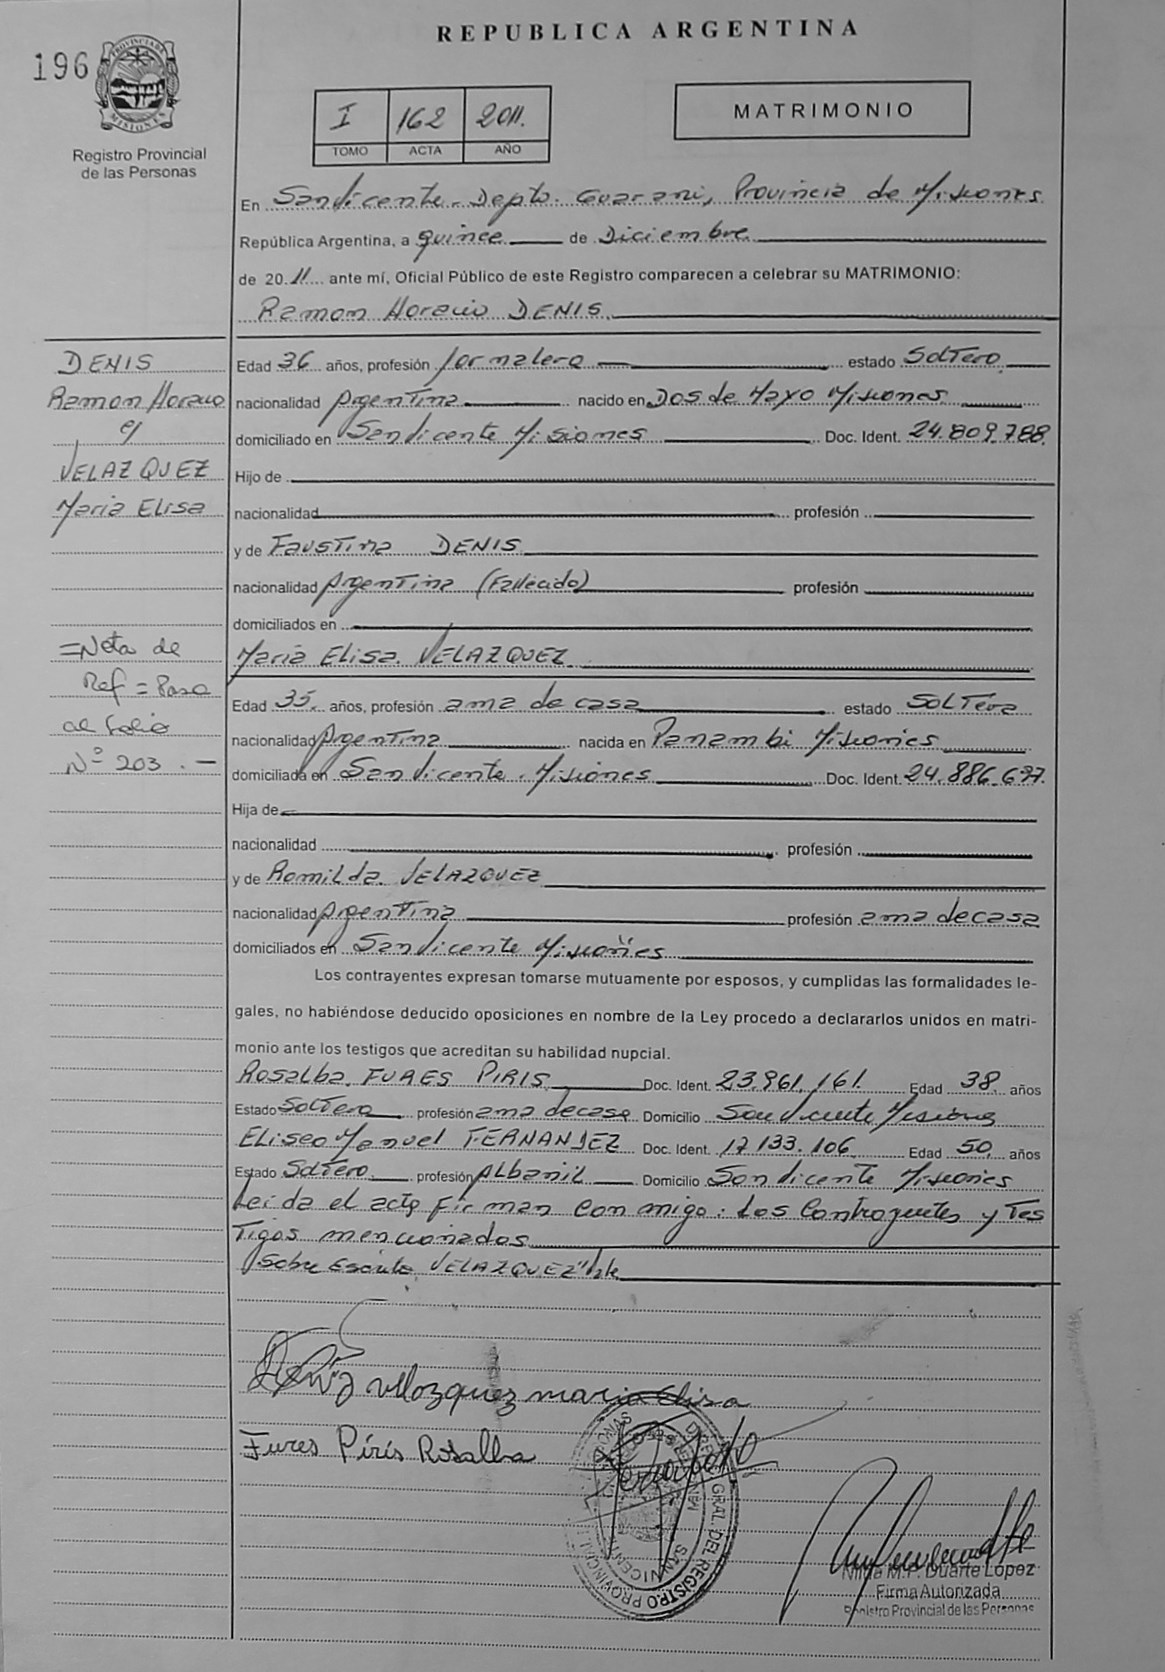 REPUBLICA ARGENTINA
196
PROVINCIA DE MISIONES
Registro Provincial
de las Personas
I 162 2011.
TOMO ACTA AÑO
MATRIMONIO
En San Vicente - Depto. Guarani, Provincia de Misiones
República Argentina, a quince de Diciembre
de 2011 ante mí, Oficial Público de este Registro comparecen a celebrar su MATRIMONIO:
Ramon Horacio DENIS
DENIS
Ramon Horacio
c/
VELAZQUEZ
Maria Elisa
Edad 36 años, profesión Jornalero estado Soltero
nacionalidad Argentina nacido en Dos de Mayo Misiones
domiciliado en San Vicente Misiones Doc. Ident. 24.809.788
Hijo de
nacionalidad profesión
y de Faustina DENIS
nacionalidad Argentina (Fallecido) profesión
domiciliados en
Maria Elisa VELAZQUEZ
=Nota de
Ref = Pasa
al folio
Nº 203 . —
Edad 35 años, profesión ama de casa estado Soltera
nacionalidad Argentina nacida en Panambi Misiones
domiciliada en San Vicente - Misiones Doc. Ident. 24.886.697
Hija de
nacionalidad profesión
y de Romilda VELAZQUEZ
nacionalidad Argentina profesión ama de casa
domiciliados en San Vicente Misiones
Los contrayentes expresan tomarse mutuamente por esposos, y cumplidas las formalidades le-
gales, no habiéndose deducido oposiciones en nombre de la Ley procedo a declararlos unidos en matri-
monio ante los testigos que acreditan su habilidad nupcial.
Rosalba FURES PIRIS Doc. Ident. 23.961.161 Edad 38 años
Estado Soltera profesión ama de casa Domicilio San Vicente Misiones
Eliseo Manuel FERNANDEZ Doc. Ident. 17.133.106 Edad 50 años
Estado Soltero profesión Albañil Domicilio San Vicente Misiones
Leida el acta firman conmigo: Los Contrayentes y Tes
Tigos mencionados
Sobre Escrito VELAZQUEZ" Vale
Velozquez maria Elisa
Fures Píris Rosalba
DIRECC. GRAL. DEL REGISTRO PROVINCIAL
SAN VICENTE
Nilda M.P. Duarte López
Firma Autorizada
Registro Provincial de las Personas